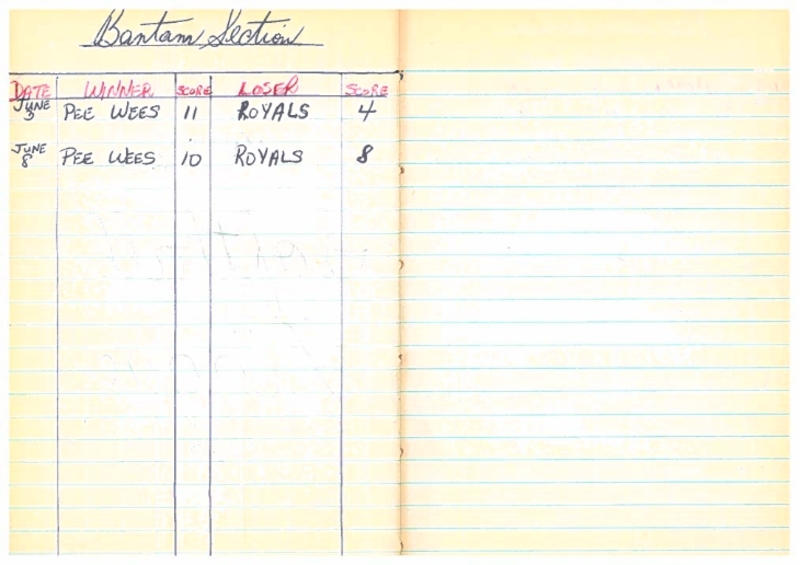 Bantam Section
DATE WINNER SCORE LOSER SCORE
JUNE 3 PEE WEES 11 ROYALS 4
JUNE 8 PEE WEES 10 ROYALS 8